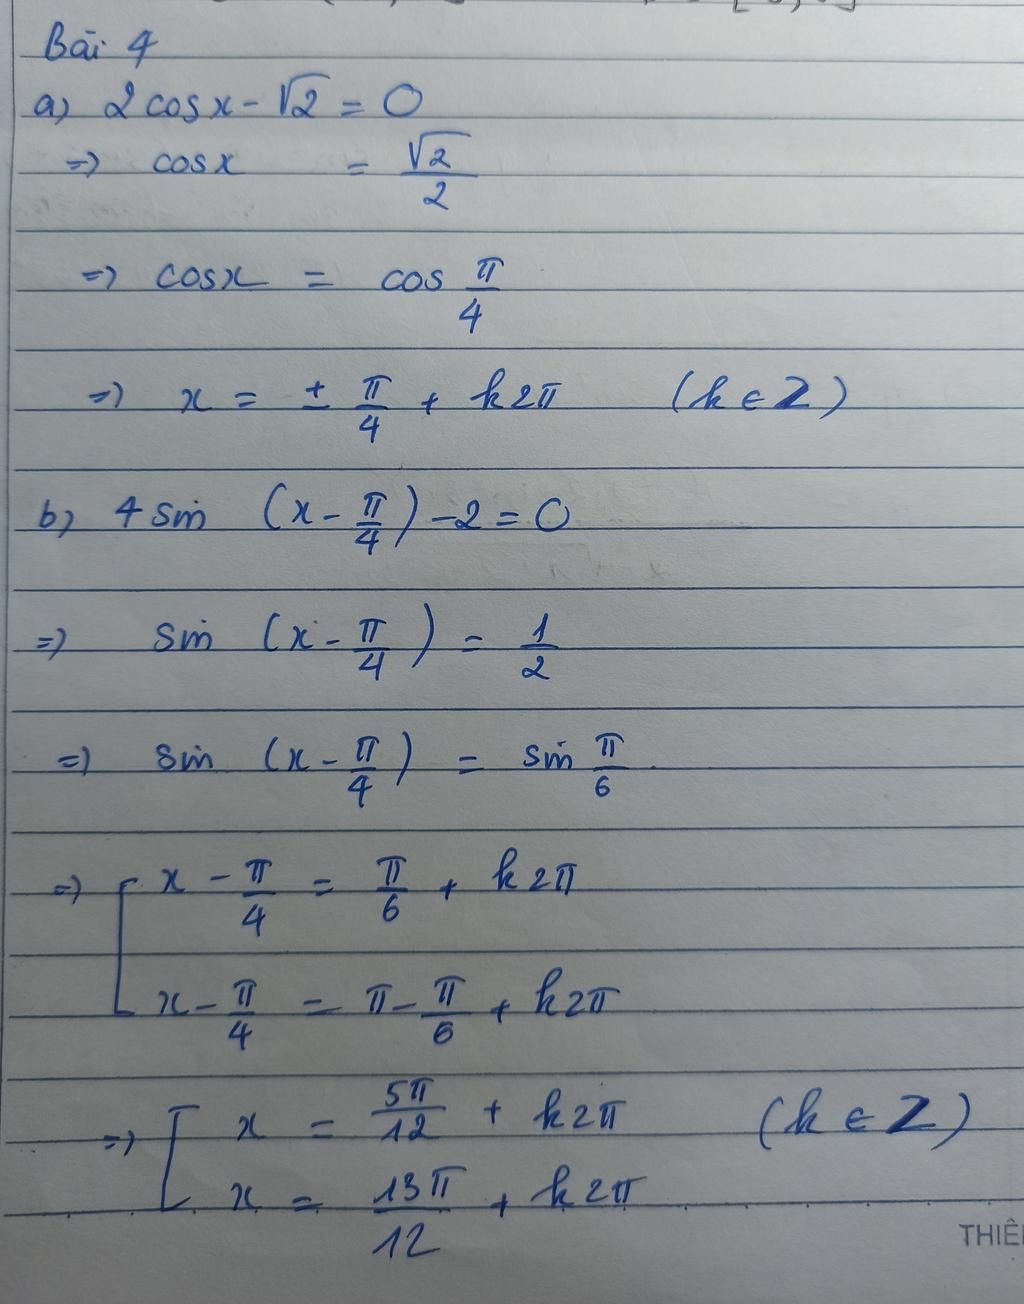 Bài 4
a) 2 cosx - √2 = 0
=> cosx = √2/2
=> cosx = cos π/4
=> x = ± π/4 + k2π (k ∈ Z)
b) 4 sin (x - π/4) - 2 = 0
=> sin (x - π/4) = 1/2
=> sin (x - π/4) = sin π/6
=> [ x - π/4 = π/6 + k2π
x - π/4 = π - π/6 + k2π
=> [ x = 5π/12 + k2π (k ∈ Z)
x = 13π/12 + k2π
THIÊ